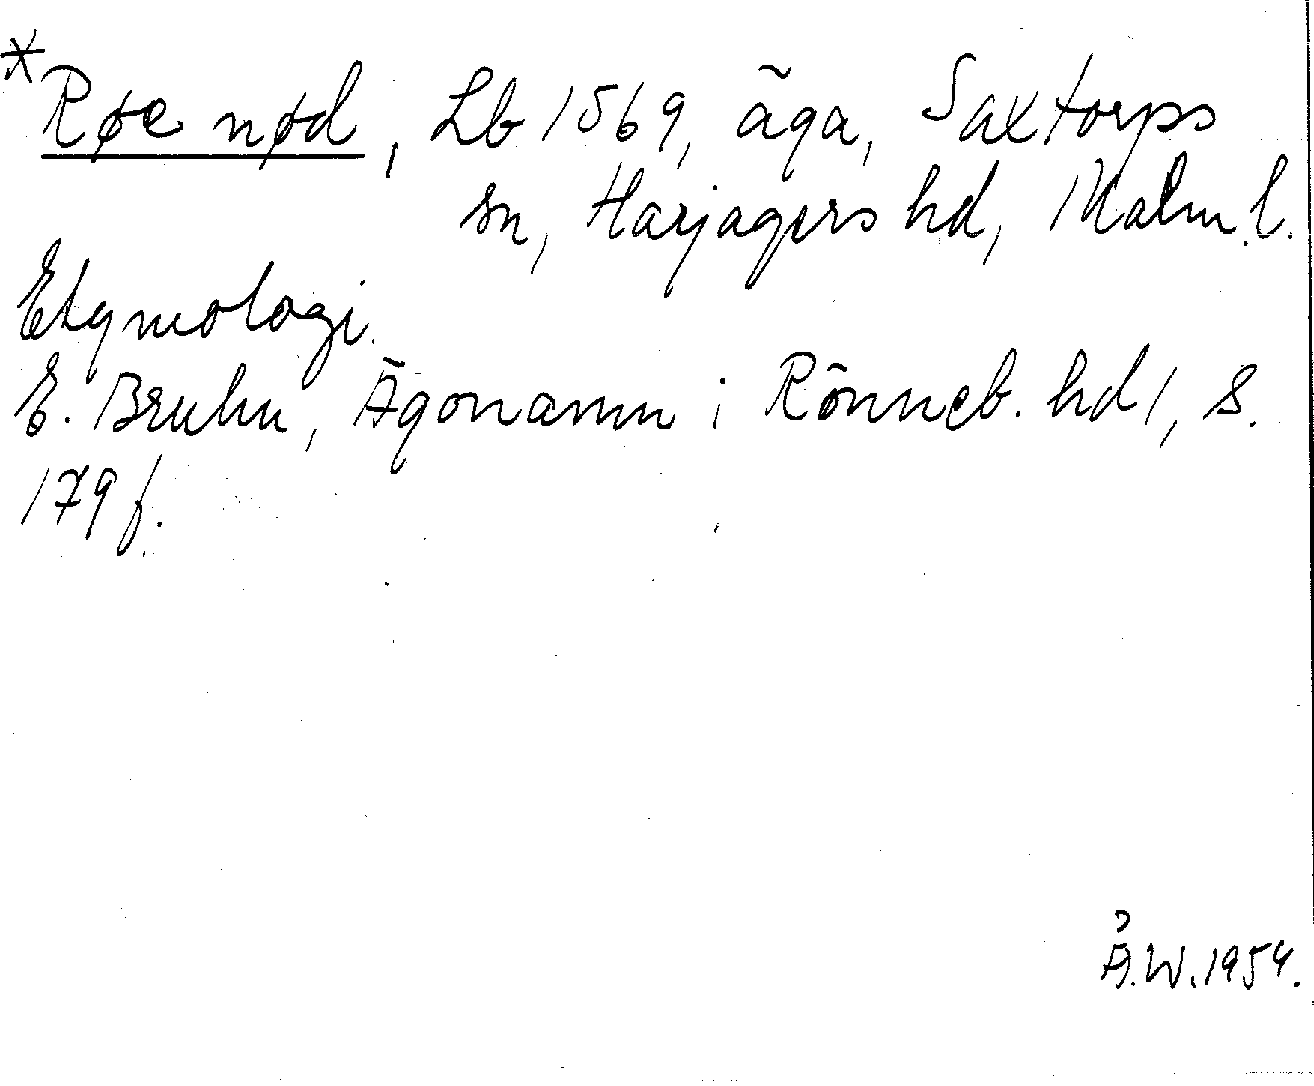 *Røe nød, Lb 1569, äga, Saxtorps
sn, Harjagers hd, Malm.l.
Etymologi.
E. Bruhn, Ägonamn i Rönneb. hd 1, s.
179 f.
Å.W. 1954.